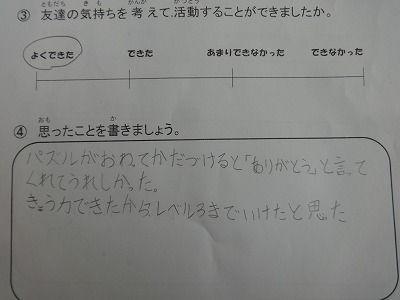 ともだち き も かんが かつどう
③ 友達の気持ちを考えて、活動することができましたか。
よくできた できた あまりできなかった できなかった
おも か
④ 思ったことを書きましょう。
パズルがおわってかたづけると「ありがとう」と言って
くれてうれしかった。
きょう力できたから、レベル3までいけたと思った